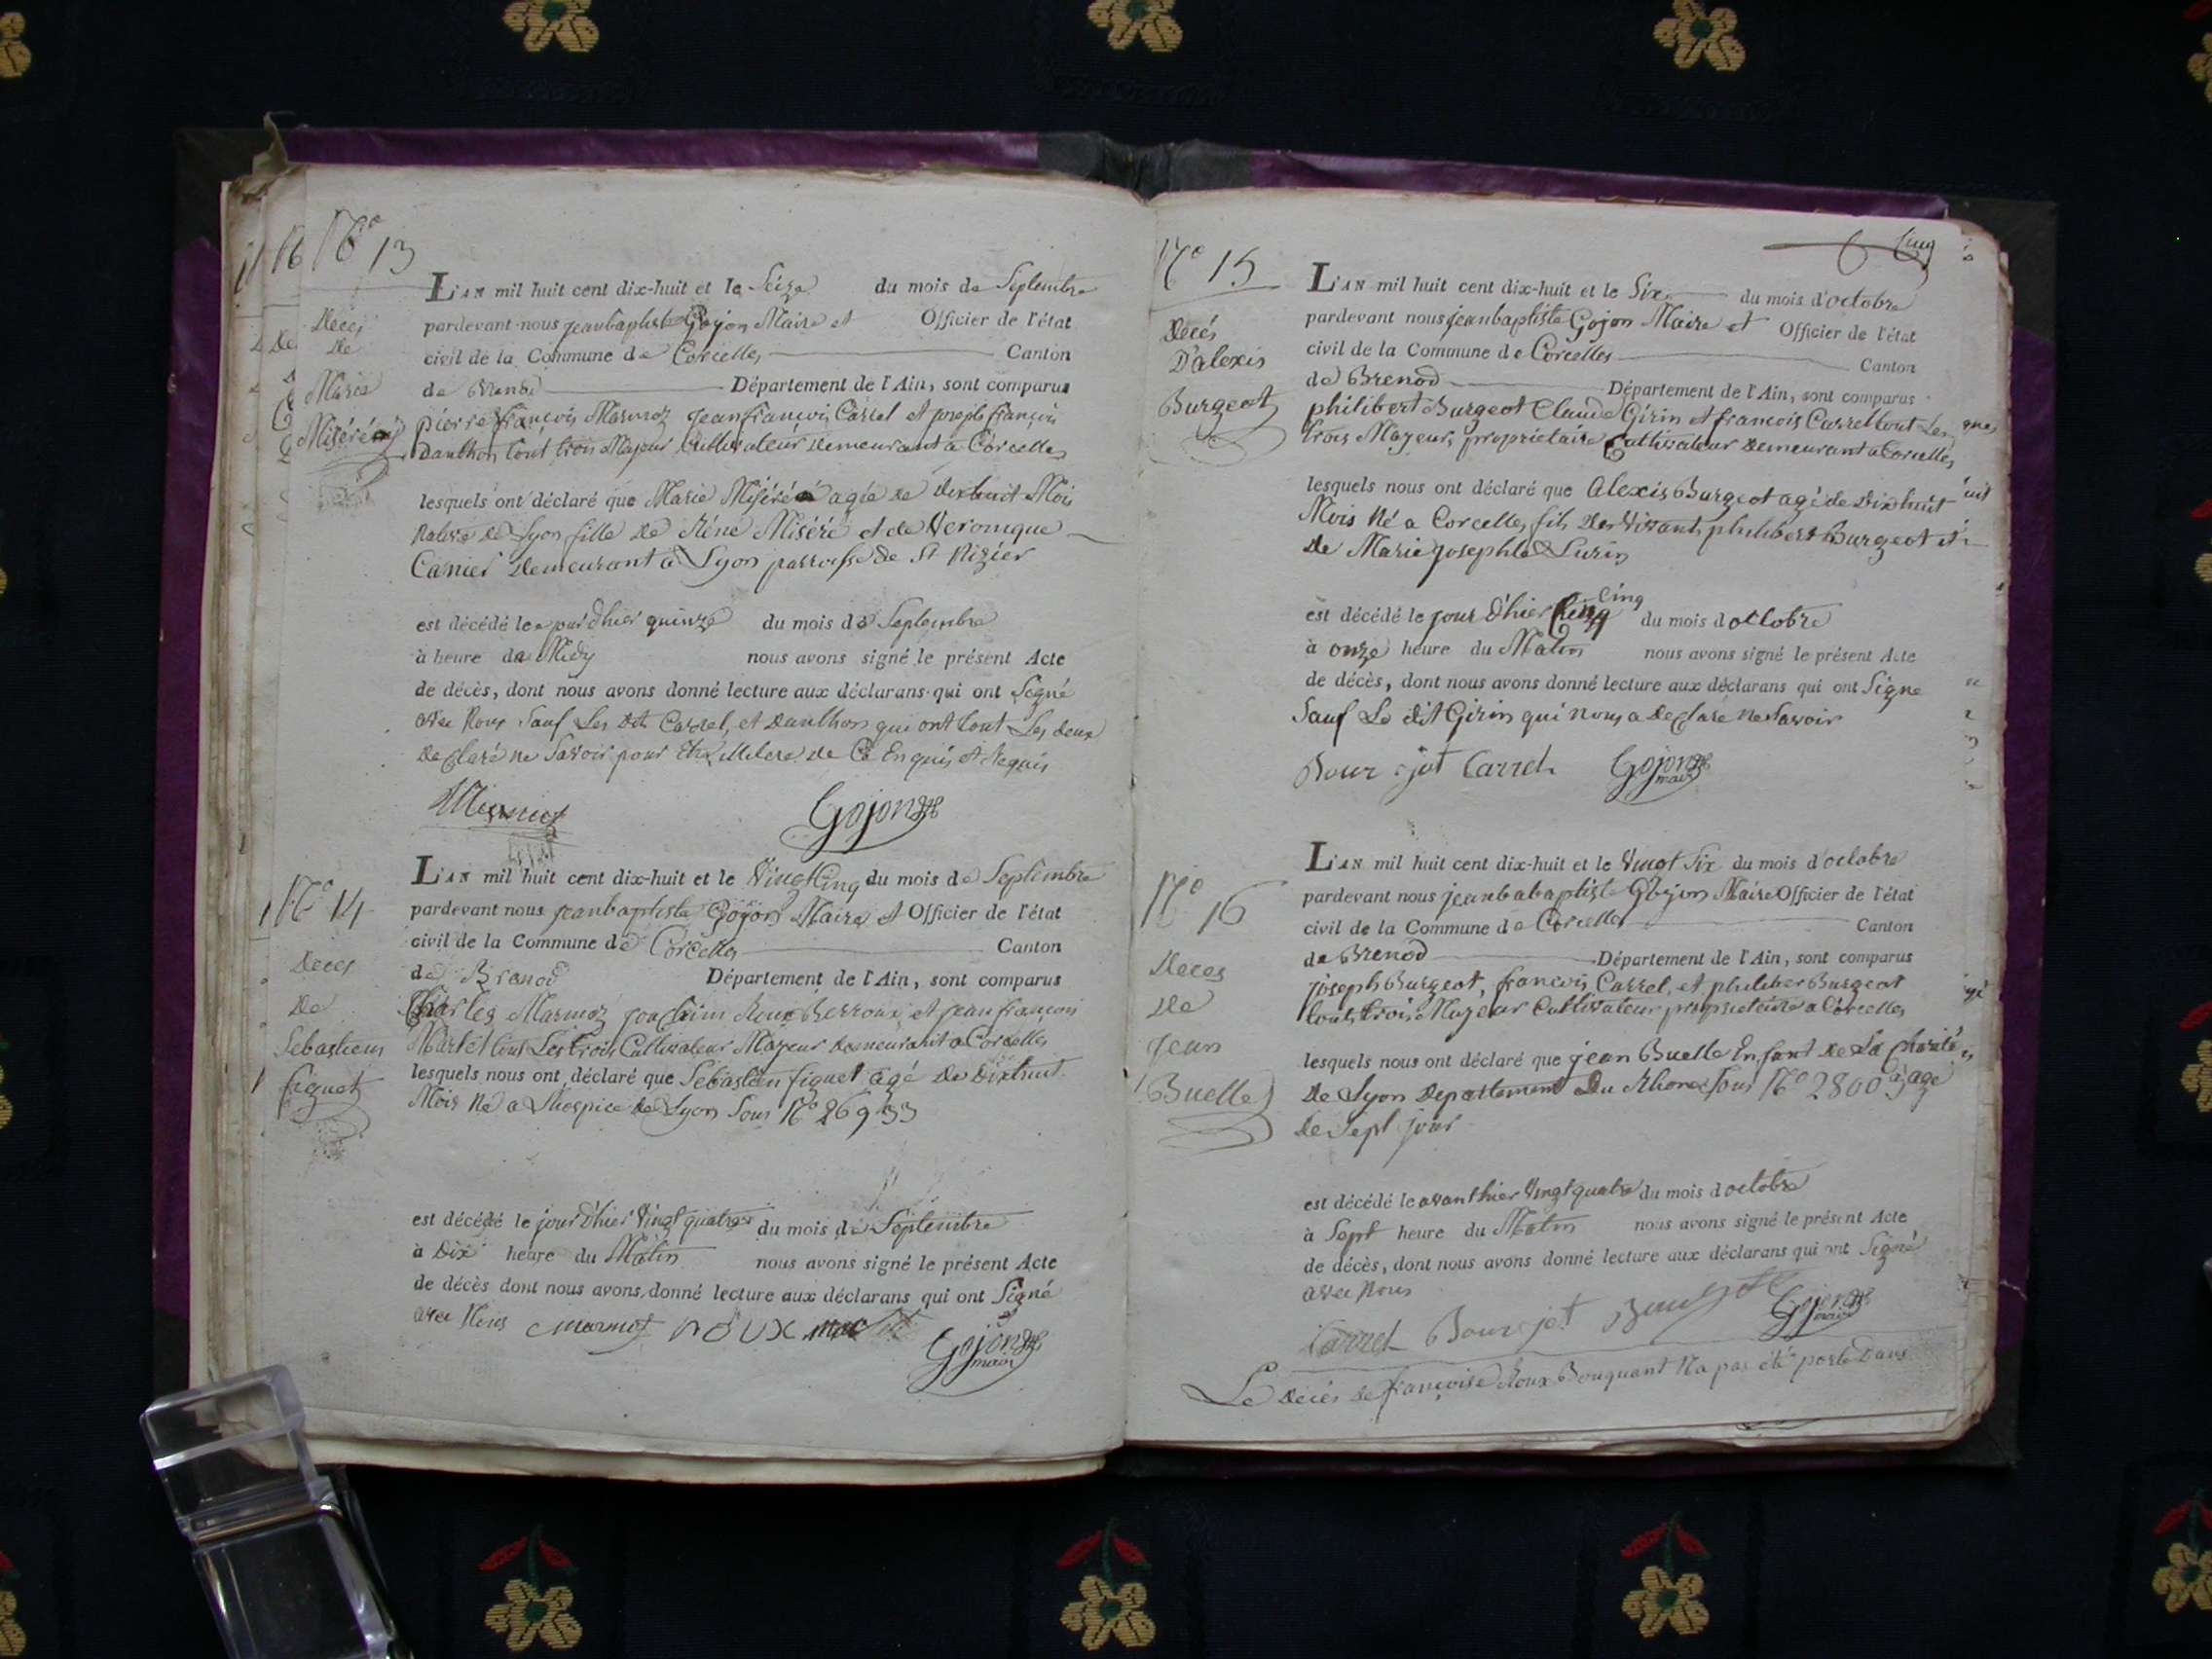 N° 13
Décès
De
Marie
Miséré
L'AN mil huit cent dix-huit et le Seize du mois de Septembre
pardevant nous jeanbaptiste Gojon Maire et Officier de l'état
civil de la Commune de Corcelles Canton
de Brenod Département de l'Ain, sont comparus
pierre françois Marmoz jeanfrançois Carrel et joseph françois
Danthon tout trois Majeur Cultivateur Demeurant a Corcelles
lesquels ont déclaré que Marie Miséré agée de dixhuit Mois
Native de Lyon fille de Réne Miséré et de Veronique
Canier Demeurant a Lyon parroisse de St Nizier
est décédé le jour d'hier quinze du mois de Septembre
à heure de Midy nous avons signé le présent Acte
de décès, dont nous avons donné lecture aux déclarans qui ont Signé
avec Nous Sauf Les Dit Carrel, et Danthon qui ont tout Les deux
Declaré ne Savoir pour Etre illiteré de Ce Enquis et Requis
Gojon
N° 14
Deces
De
Sebastien
figuet
L'AN mil huit cent dix-huit et le Vingt Cinq du mois de Septembre
pardevant nous jeanbaptiste Gojon Maire et Officier de l'état
civil de la Commune de Corcelles Canton
de Brenod Département de l'Ain, sont comparus
Charles Marmoz joachim Roux Berroux et jean françois
Martel tout Les trois Cultivateur Majeur Demeurant a Corcelles
lesquels nous ont déclaré que Sebastien figuet agé de Dixhuit
Mois Né a Lhospice de Lyon Sous N° 26933
est décédé le jour d'hier Vingt quatre du mois de Septembre
à Dix heure du Matin nous avons signé le présent Acte
de décès dont nous avons donné lecture aux déclarans qui ont Signé
avec Nous marmot ROUX Gojon
maire
Cinq
N° 15
Decés
D'alexis
Burgeot
L'AN mil huit cent dix-huit et le Six du mois d'octobre
pardevant nous jeanbaptiste Gojon Maire et Officier de l'état
civil de la Commune de Corcelles Canton
de Brenod Département de l'Ain, sont comparus
philibert Burgeot Claude Girin et francois Carrel tout Les
trois Majeur, proprietaire Cultivateur Demeurant a Corcelles
lesquels nous ont déclaré que Alexis Burgeot agé de Dixhuit
Mois Né a Corcelles fils Des Vivants philibert Burgeot et
de Marie josephte Luzin
Cinq
est décédé le jour d'hier Cinq du mois d'octobre
à onze heure du Matin nous avons signé le présent Acte
de décès, dont nous avons donné lecture aux déclarans qui ont Signe
Sauf Le dit Girin qui nous a Declaré ne Savoir
Bour jot Carrel Gojon
maire
N° 16
Deces
De
Jean
Buelle
L'AN mil huit cent dix-huit et le Vingt Six du mois d'octobre
pardevant nous jeanbabaptiste Gojon Maire Officier de l'état
civil de la Commune de Corcelles Canton
de Brenod Département de l'Ain, sont comparus
joseph Burgeot, francois Carrel, et philiber Burgeot
tout trois Majeur Cultivateur proprietaire a Corcelles
lesquels nous ont déclaré que jean Buelle Enfant de La Charité
de Lyon Departement Du Rhone Sous N° 2800 agé
de Sept jour
est décédé le avant hier Vingt quatre du mois d octobre
à Sept heure du Matin nous avons signé le présent Acte
de décès, dont nous avons donné lecture aux déclarans qui ont Signé
avec Nous
Carrel Bourjot Gojon
maire
Le décés de françoise Roux Bouquant Na pas été porté Dans